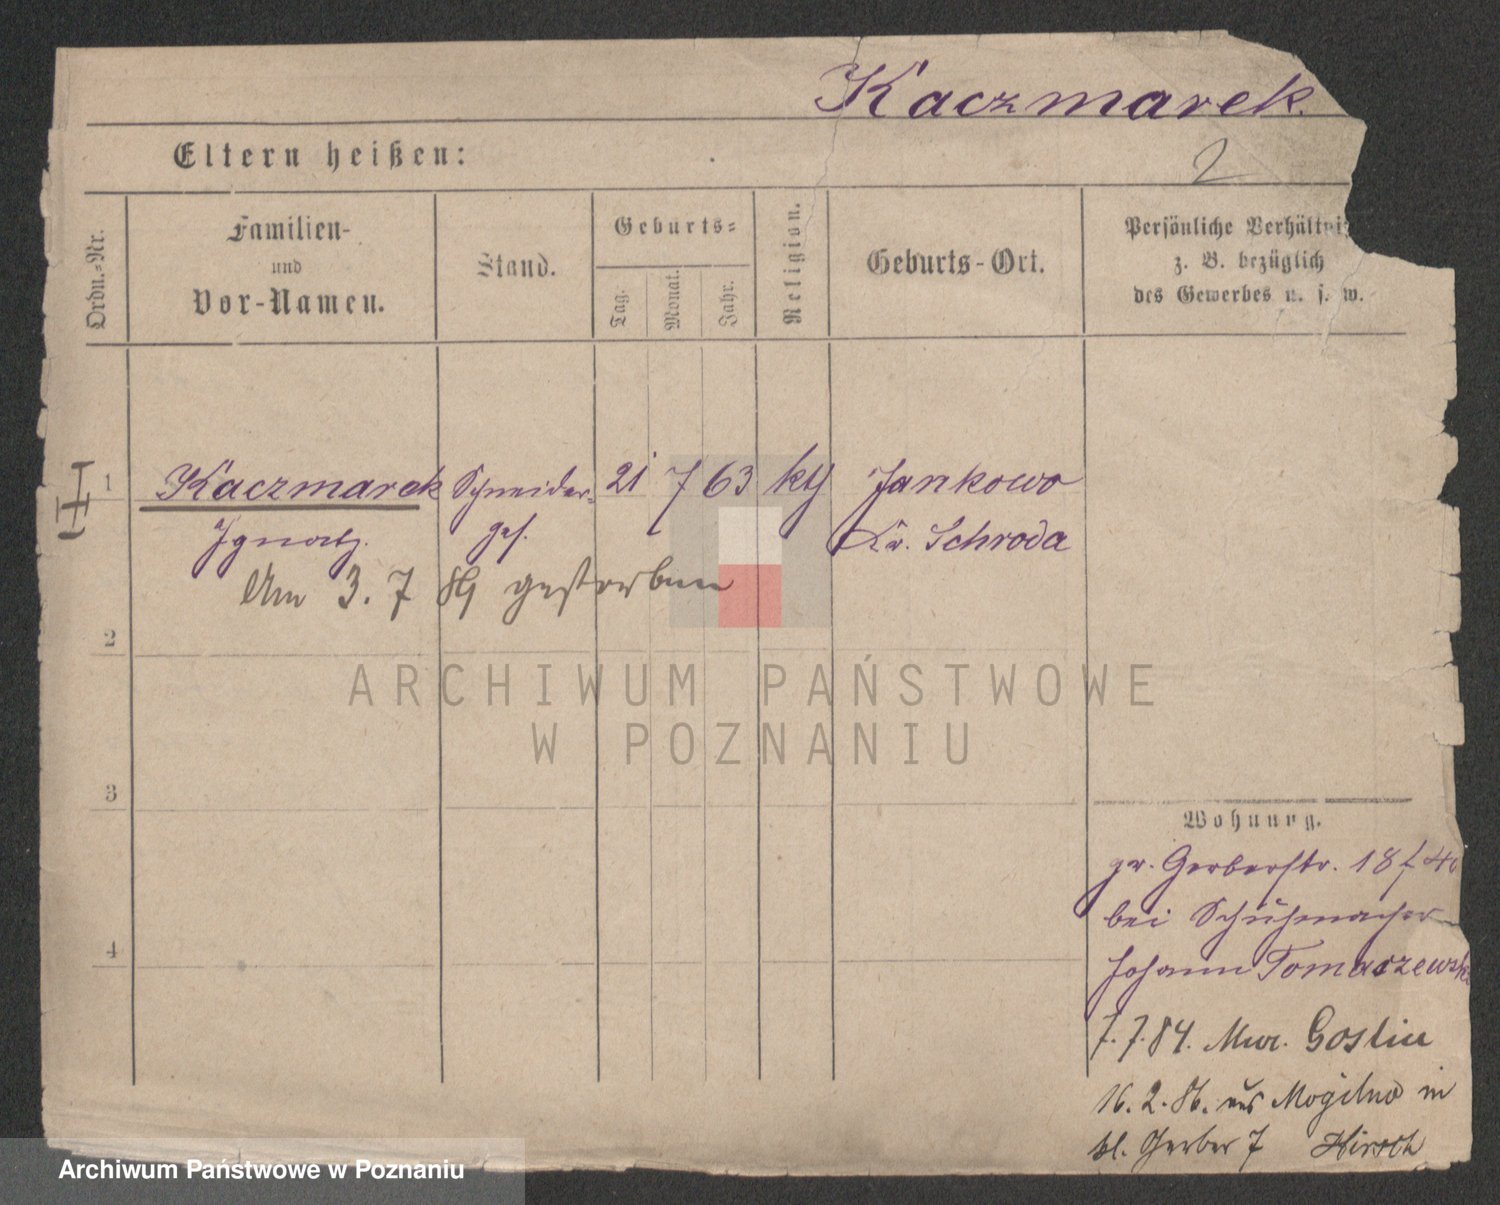 Kaczmarek.
2
Eltern heißen:
Ordn.=Nr.
Familien-
und
Vor-Namen.
Stand.
Geburts=
Tag.
Monat.
Jahr.
Religion.
Geburts-Ort.
Persönliche Verhältni
z. B. bezüglich
des Gewerbes u. s. w.
1 Kaczmarek Schneider= 21 7 63 kth Jankowo
Ignatz. ges. Kr. Schroda
Am 3. 7 89 gestorben
2
3
4
Wohnung.
gr. Gerberstr. 18
bei Schuhmacher
Johann Tomaszewski
7. 7. 84. Goslin
16. 2. 86. aus Mogilno in
kl. Gerber 7 Hirsch
ARCHIWUM PAŃSTWOWE
W POZNANIU
Archiwum Państwowe w Poznaniu